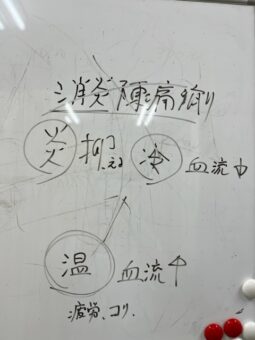 消炎 鎮痛剤
炎 抑える 冷 血流↓
温 血流↑
疲労、コリ、